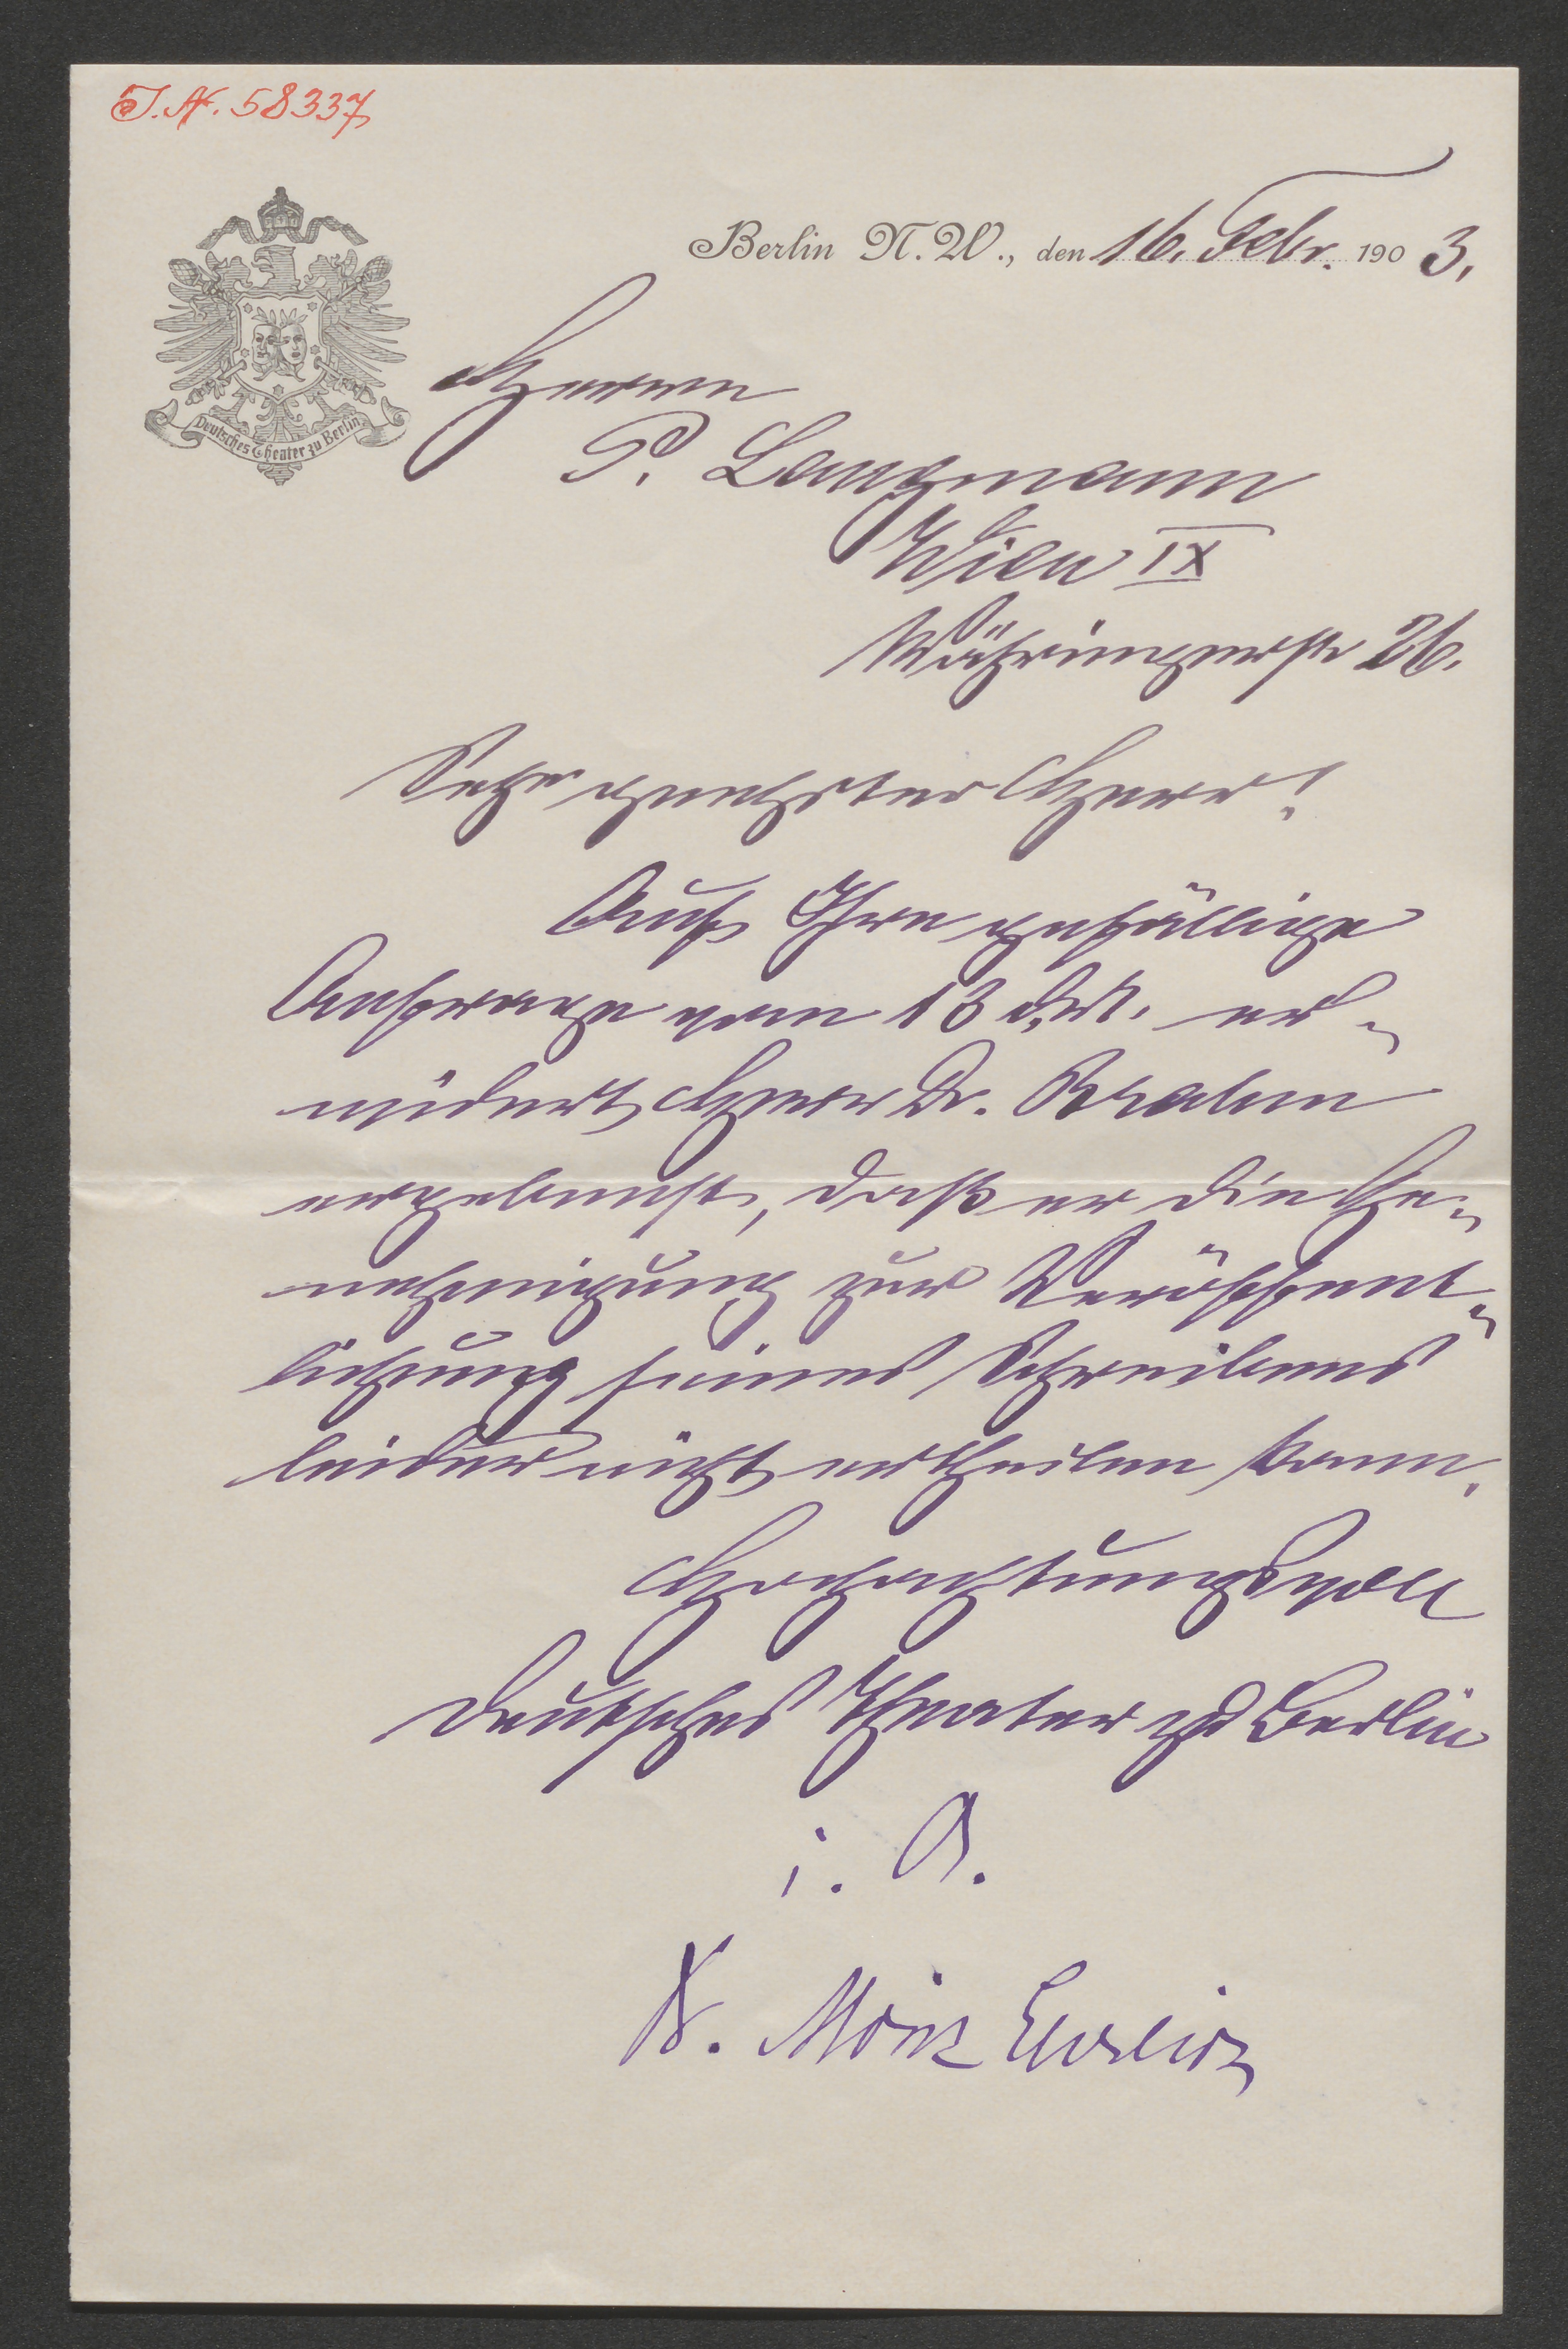 J.N. 58337
Deutsches Theater zu Berlin
Berlin N.W., den 16. Febr. 1903.
Herrn
P. Langmann
Wien IX
Währingerstr 26.
Sehr geehrter Herr!
Auf Ihre gefällige
Anfrage vom 13 d. M. er-
widert Herr Dr. Brahm
ergebenst, daß er die Ge-
nehmigung zur Veröffent-
lichung seines Schreibens
leider nicht ertheilen kann.
Hochachtungsvoll
Deutsches Theater zu Berlin
i. A.